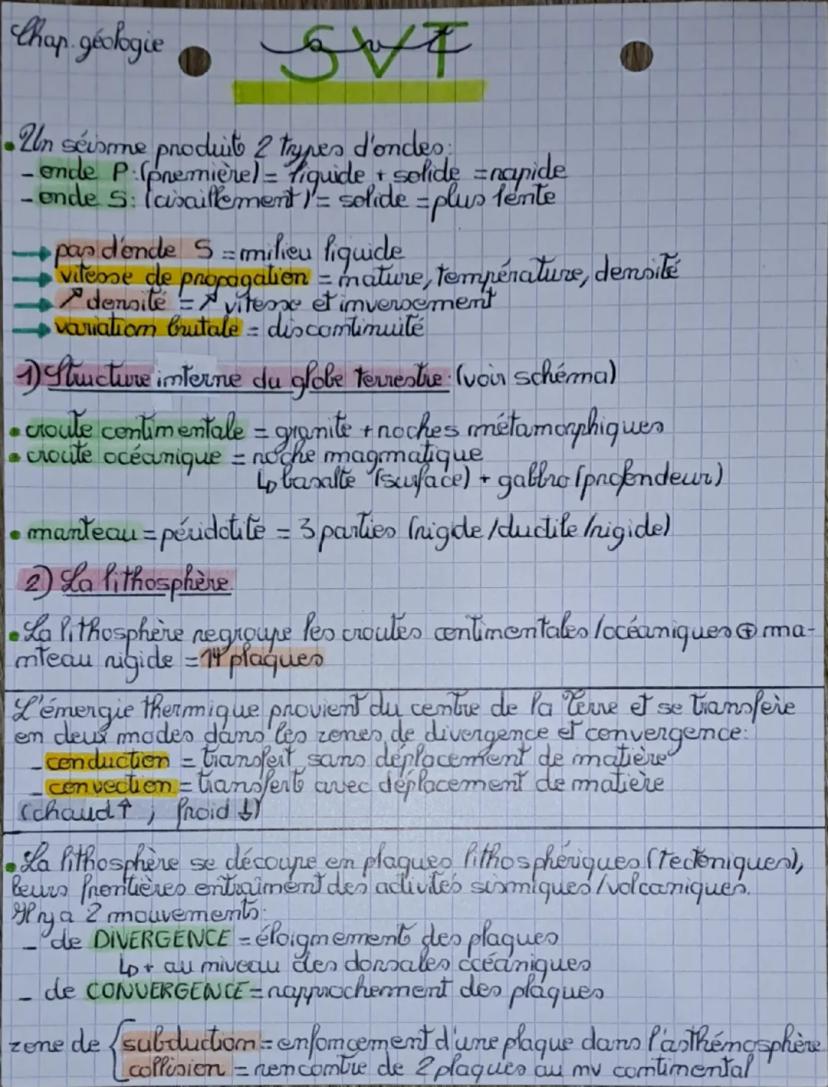 Chap. géologie
SVT
• Un séisme produit 2 types d'ondes:
- onde P: (première) = liquide + solide = rapide
- onde S: (cisaillement) = solide = plus lente
→ pas d'onde S = milieu liquide
→ vitesse de propagation = nature, température, densité
→ ↗ densité = ↗ vitesse et inversement
→ variation brutale = discontinuité
1) Structure interne du globe terrestre: (voir schéma)
• croute continentale = granite + roches métamorphiques
• croute océanique = roche magmatique
↳ basalte (surface) + gabbro (profondeur)
• manteau = péridotite = 3 parties (rigide/ductile/rigide)
2) La lithosphère
• La lithosphère regroupe les croutes continentales/océaniques ⊕ ma-
nteau rigide = 14 plaques
L'énergie thermique provient du centre de la Terre et se transfère
en deux modes dans les zones de divergence et convergence:
- conduction = transfert sans déplacement de matière
- convection = transferts avec déplacement de matière
(chaud ↑ ; froid ↓)
• La lithosphère se découpe en plaques lithosphériques (tectoniques),
leurs frontières entraînent des activités sismiques/volcaniques.
Il y a 2 mouvements:
- de DIVERGENCE = éloignements des plaques
↳ + au niveau des dorsales océaniques
- de CONVERGENCE = rapprochement des plaques
zone de { subduction = enfoncement d'une plaque dans l'asthénosphère
collision = rencontre de 2 plaques au nv continental